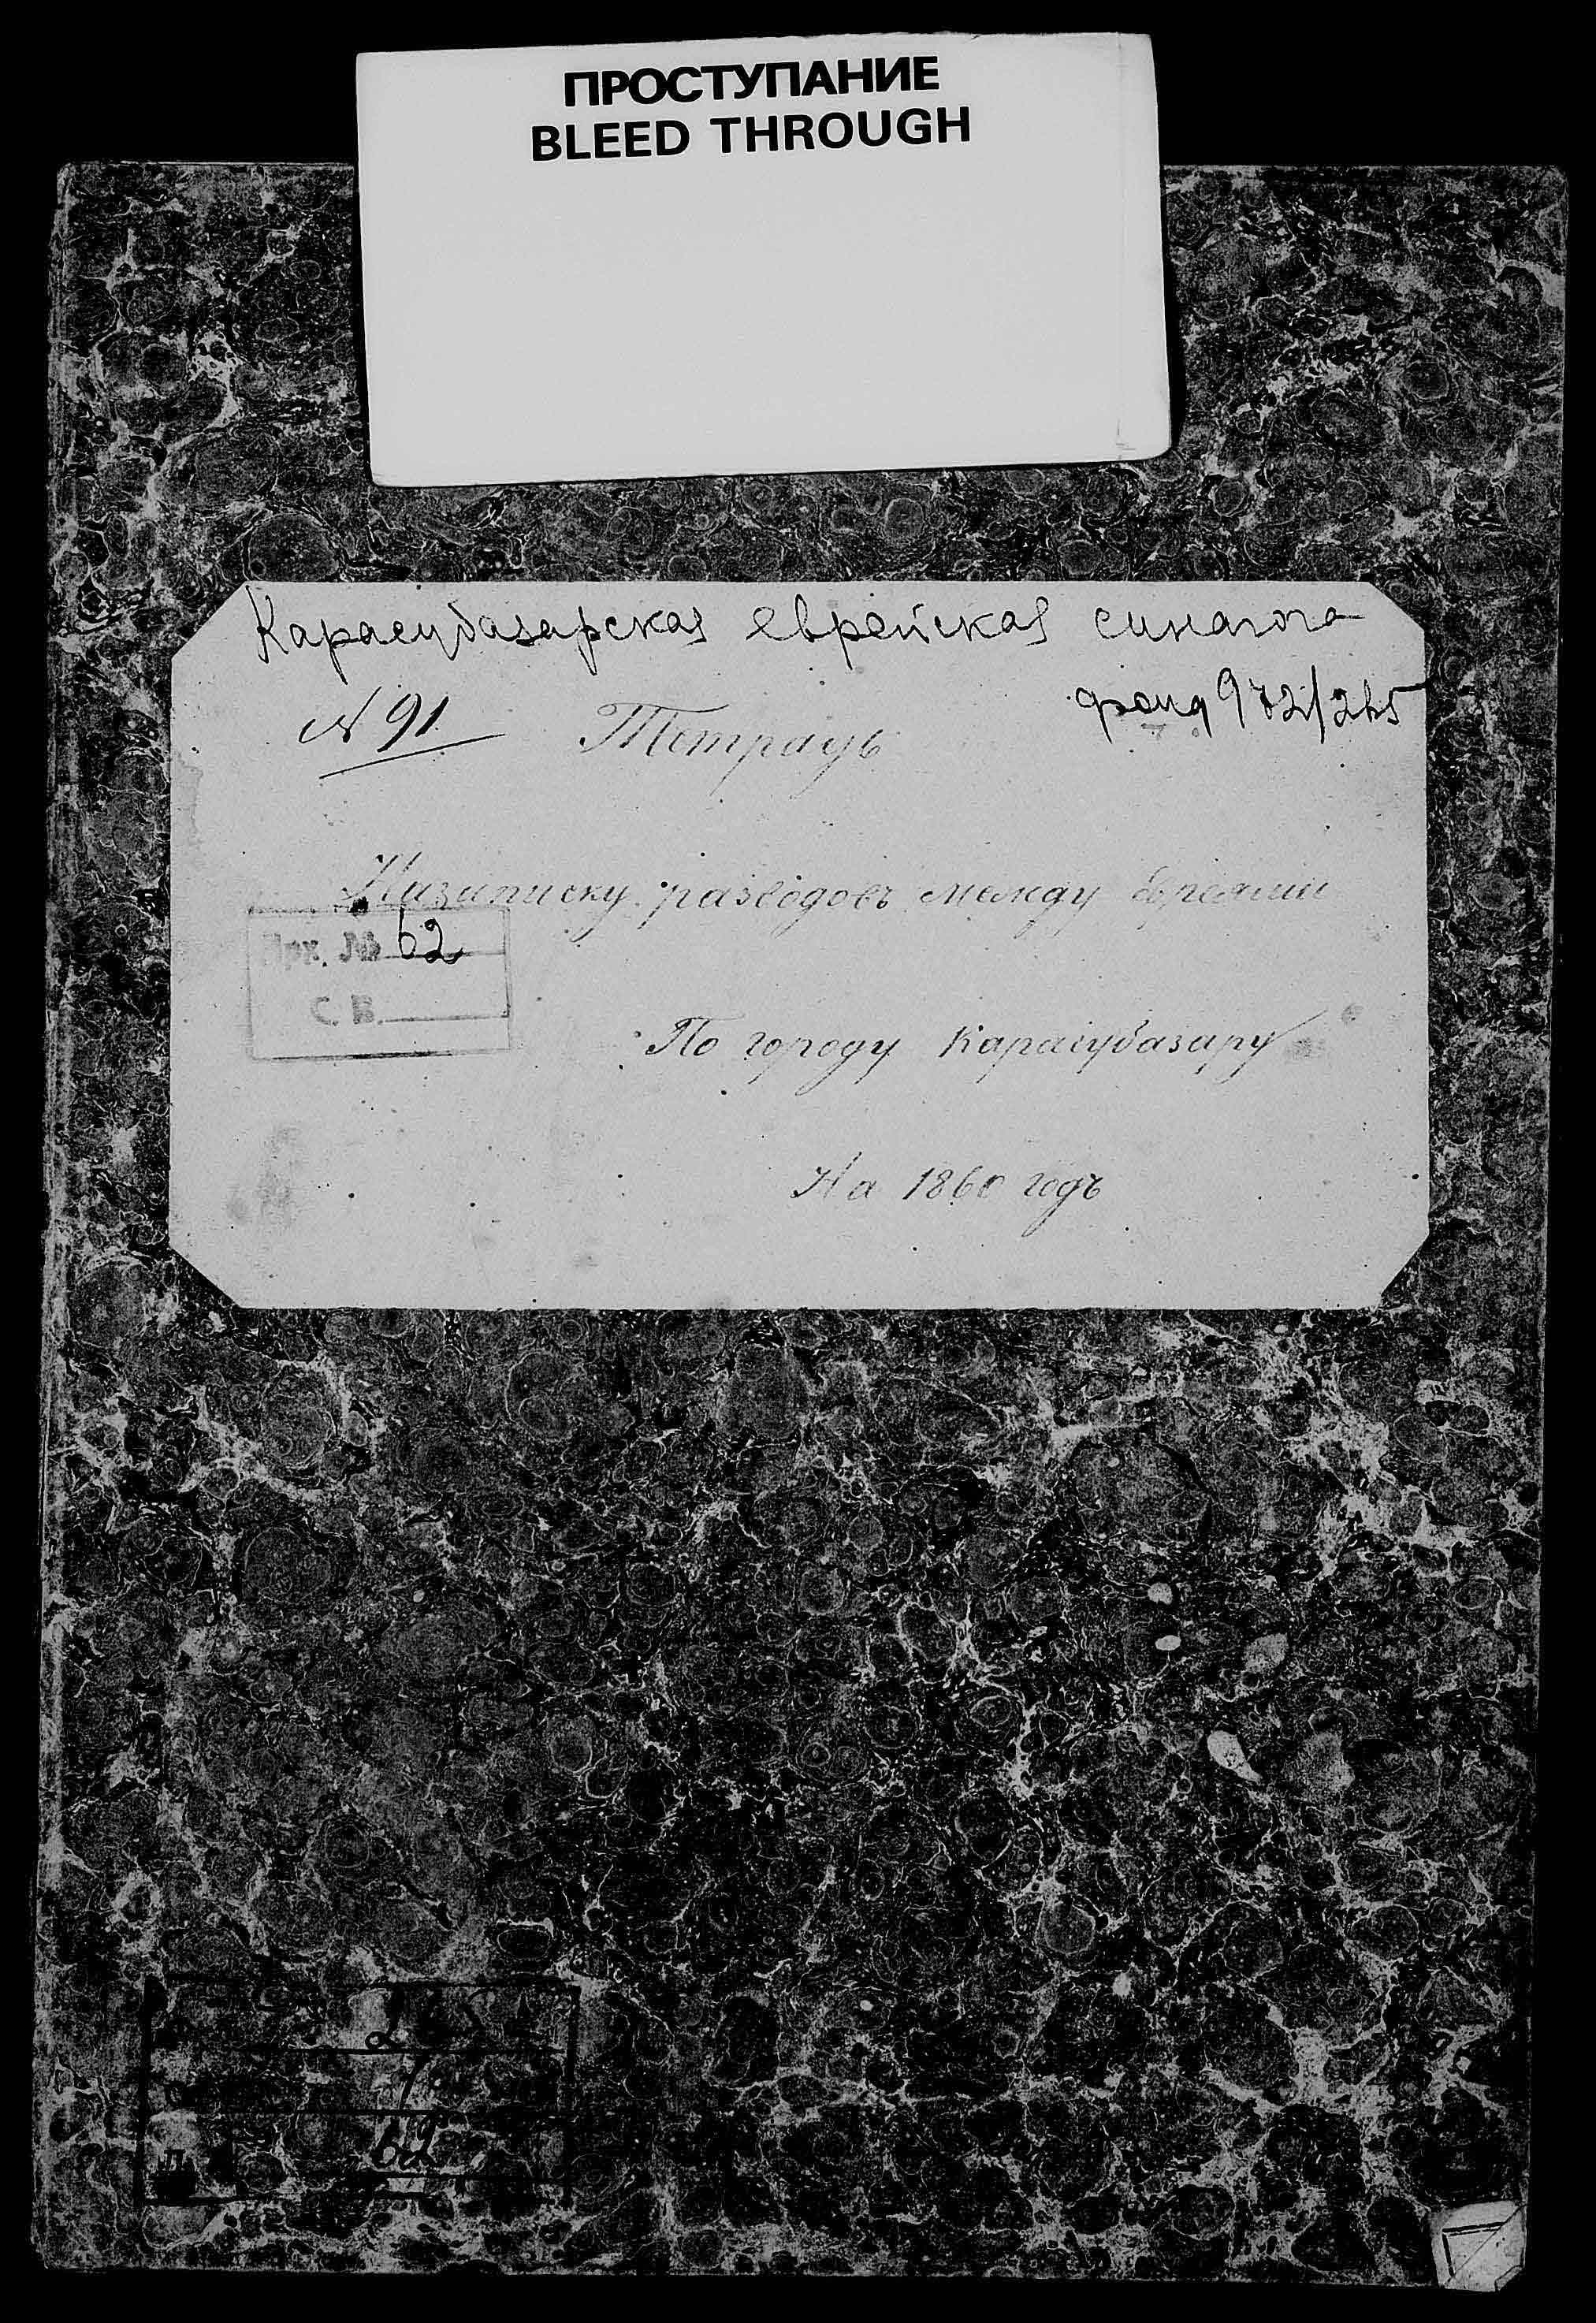 ПРОСТУПАНИЕ
BLEED THROUGH
Карасубазарская еврейская синагога
№ 91
фонд 972/265
Тетрадь
Назаписку разводовъ между евреями
Арх. № 62
С. В.
По городу Карасубазару
На 1860 годъ
265
1
62